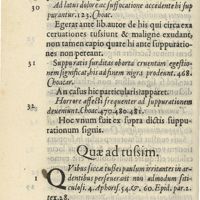 30 Ad latus dolore ac suffocatione accedente hi sup
purantur. 123. Choac.
Egerat ante lib. autor de his qui circa ex
cretuationes tussiunt & maligne exudant,
non tamen capio quare hi ante suppuratio-
nes non peteant.
31 Suppuratis surditas oborta cruentam egestio
nem significat, his ad finem nigra prodeunt. 468.
Choac.
An casus hic particularis apparet.
32 Horrore affecti frequenter ad suppurationem
deueniunt. Choac. 470. 480. 481.
Hoc vnum fuit ex supra dictis suppu-
rationum signis.
Quæ ad tussim.
1 QVibus siccæ tusses paulum irritantes in ar-
dentibus perseuerant non admodum siti-
culosi. 4. Aphors. 54. &. 60. Epid. par. 2.
tex. 28.